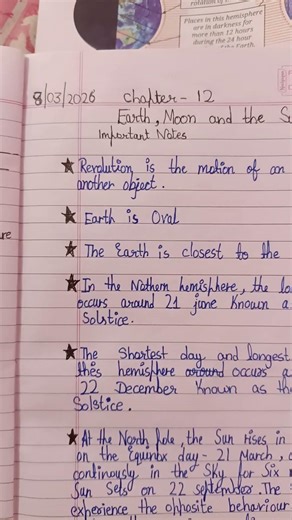 Places in this hemisphere
are in darkness for
more than 12 hours
during the 24 hour
8/03/2026 Chapter - 12
Earth, Moon and the
Important Notes
★ Revolution is the motion of an
another object.
★ Earth is Oval
★ The Earth is closest to the
★ In the Nothern hemisphere, the
occurs around 21 june Known
Solstice.
★ The Shortest day and longest
this hemisphere around occurs
22 December Known as the
Solstice.
★ At the North Pole, the Sun rises in
on the Equinox day - 21 March,
continously in the Sky for Six
Sun Sets on 22 september. The
experience the opposite behaviour